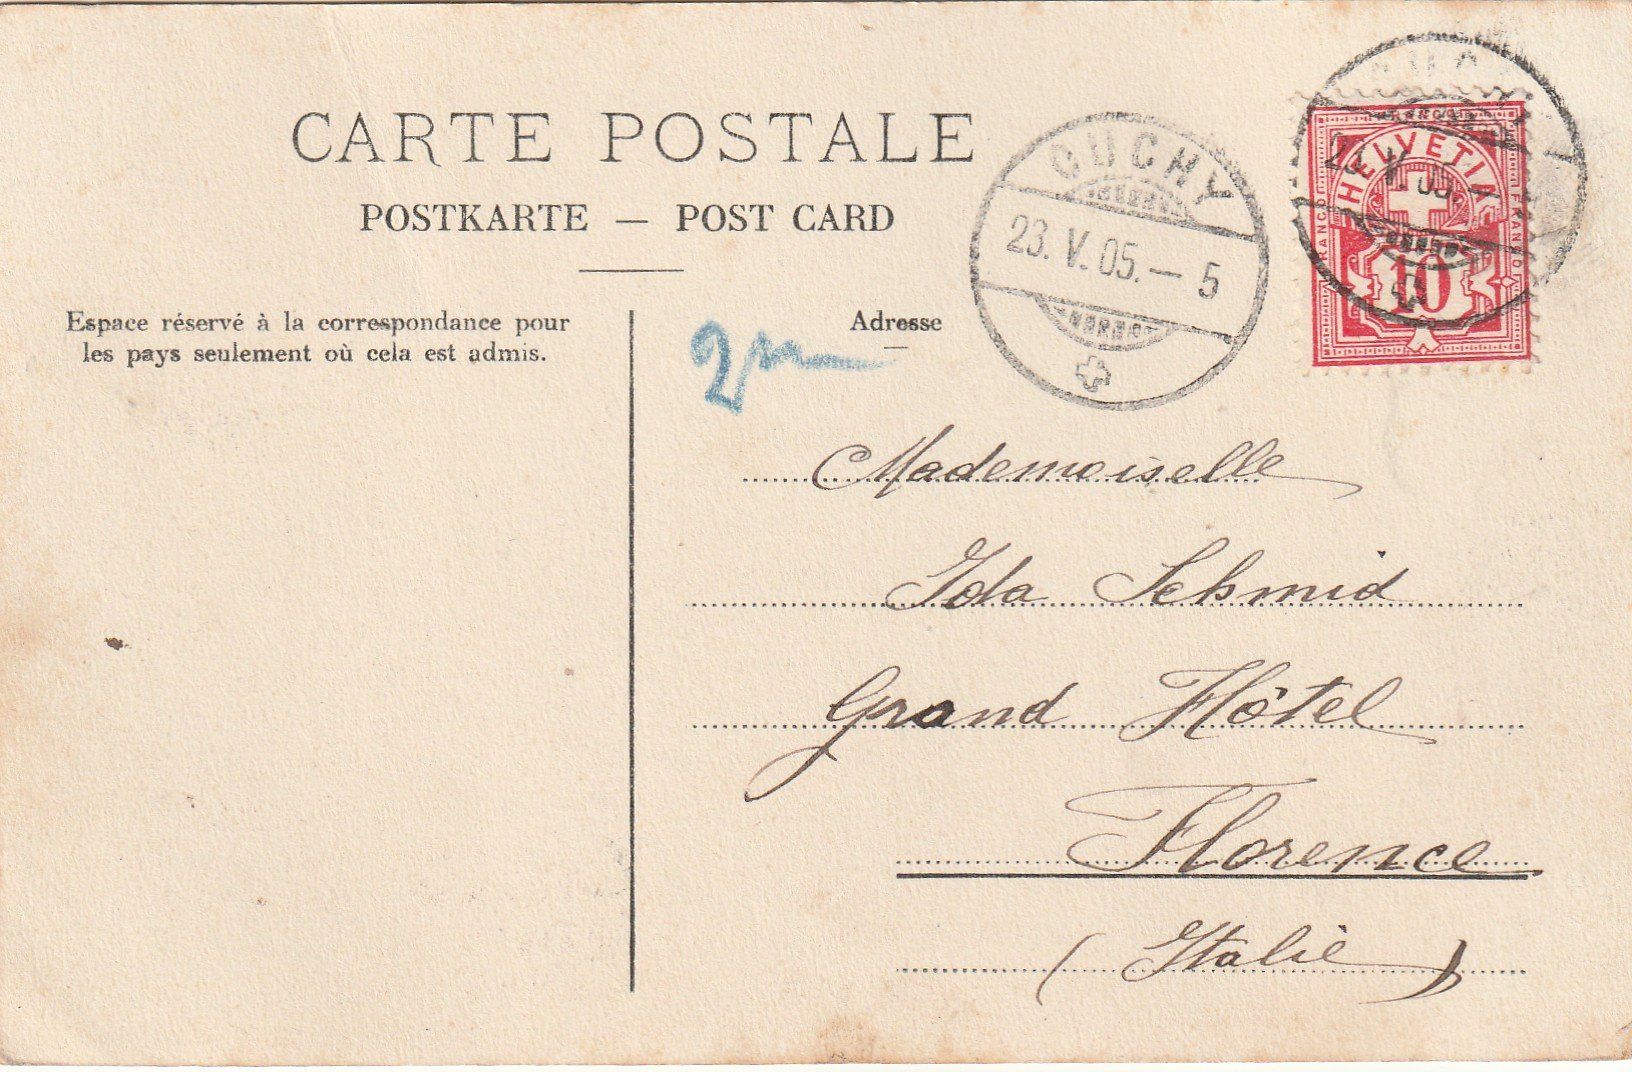 CARTE POSTALE
POSTKARTE — POST CARD
Espace réservé à la correspondance pour
les pays seulement où cela est admis.
Adresse
OUCHY
23. V. 05. — 5
FRANCO
HELVETIA
FRANCO
10
23. V. 05.
Mademoiselle
Ida Schmid
Grand Hôtel
Florence
(Italie)